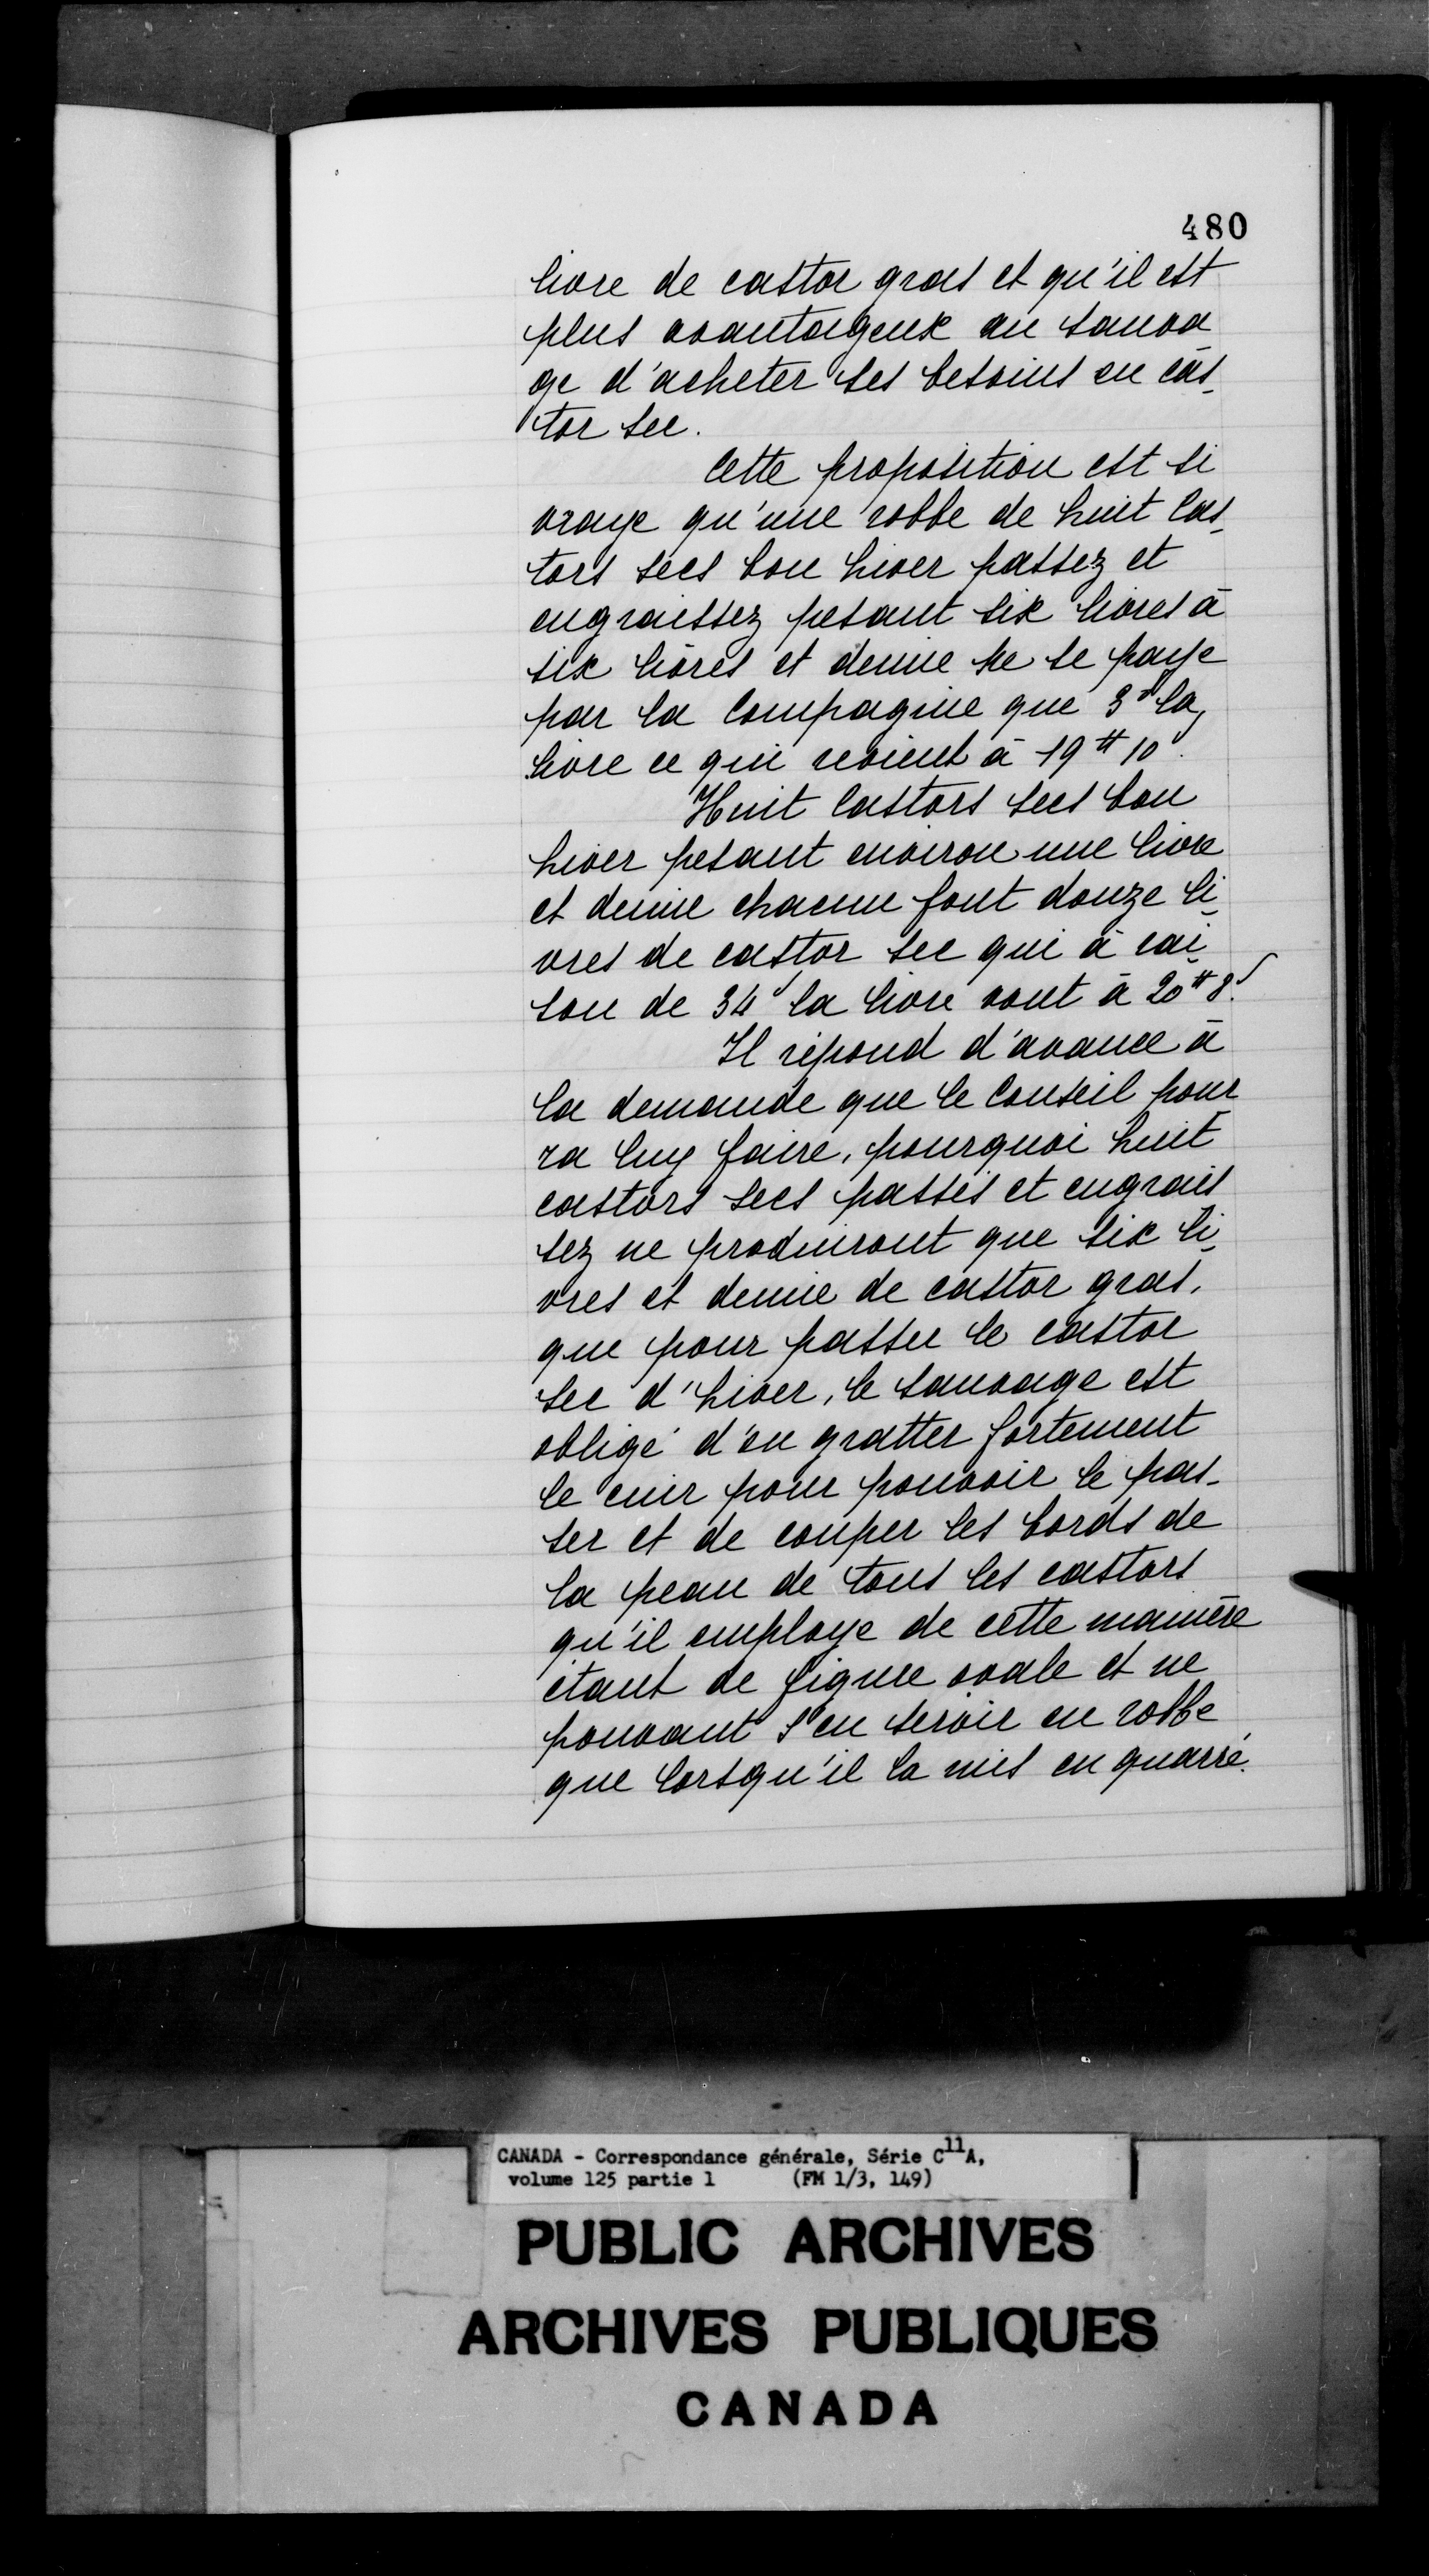 480
livre de castor gras et qu'il est
plus avantageux au sauva
ge d'acheter ses besoins en cas-
tor sec.
Cette proposition est si
vraye qu'une robbe de huit Cas-
tors secs bon hiver passez et
engraissez pesant six livres à
six livres et demie ne se paye
par la Compagnie que 3# la
livre ce qui revient à 19# 10s.
Huit Castors secs bon
hiver pesant environ une livre
et demie chacun font douze li-
vres de castor sec qui à rai-
son de 34s la livre vont à 20# 8s.
Il répond d'avance à
la demande que le Conseil pour
ra luy faire, pourquoi huit
castors secs passés et engrais
sez ne produiront que six li-
vres et demie de castor gras,
que pour passer le castor
sec d'hiver, le sauvage est
obligé d'en gratter fortement
le cuir pour pouvoir le pas-
ser et de couper les bords de
la peau de tous les castors
qu'il employe de cette manière
étant de figure ovale et ne
pouvant s'en servir en robbe
que lorsqu'il la mis en quarré.
CANADA - Correspondance générale, Série C11A,
volume 125 partie 1 (FM 1/3, 149)
PUBLIC ARCHIVES
ARCHIVES PUBLIQUES
CANADA